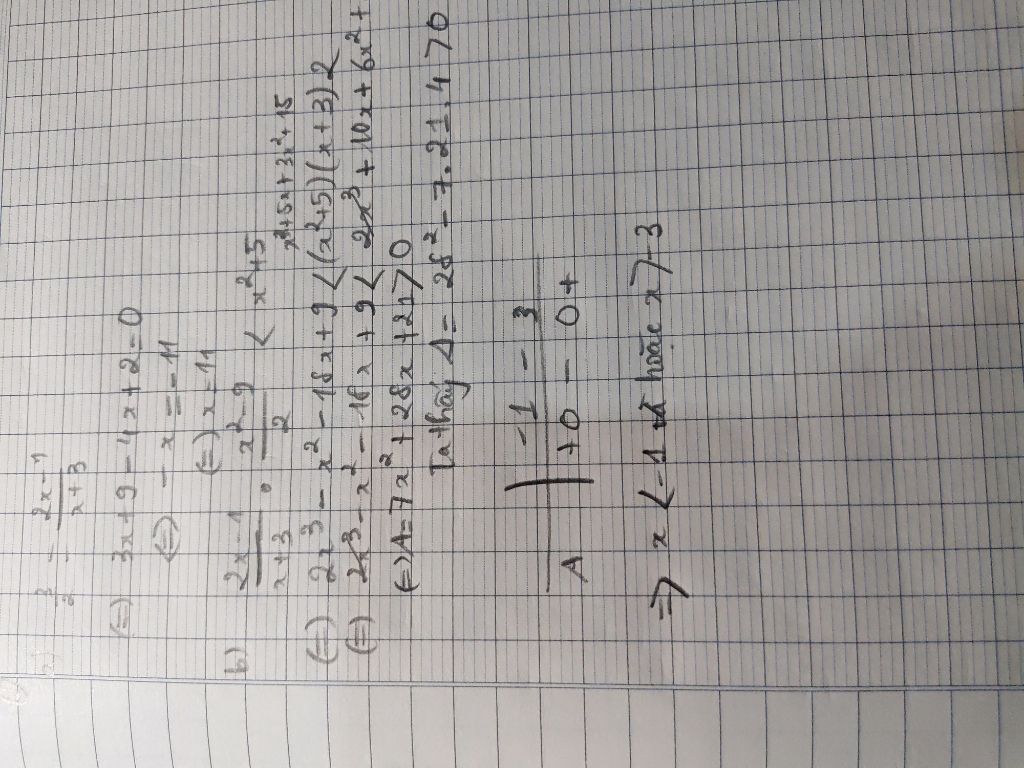 a)
3/2 = (2x-1)/(x+3)
(=) 3x + 9 - 4x + 2 = 0
(=) -x = -11
(=) x = 11
b) (2x-1)/(x+3) . (x²-9)/2 < x²+5
x³+5x+3x²+15
(=) 2x³ - x² - 18x + 9 < (x²+5)(x+3)2
(=) 2x³ - x² - 18x + 9 < 2x³ + 10x + 6x² +
(=) A = 7x² + 28x + 21 > 0
Ta thấy Δ = 28² - 7.21.4 > 0
-1 -3
A | + 0 - 0 +
=> x < -1 hoặc x > -3